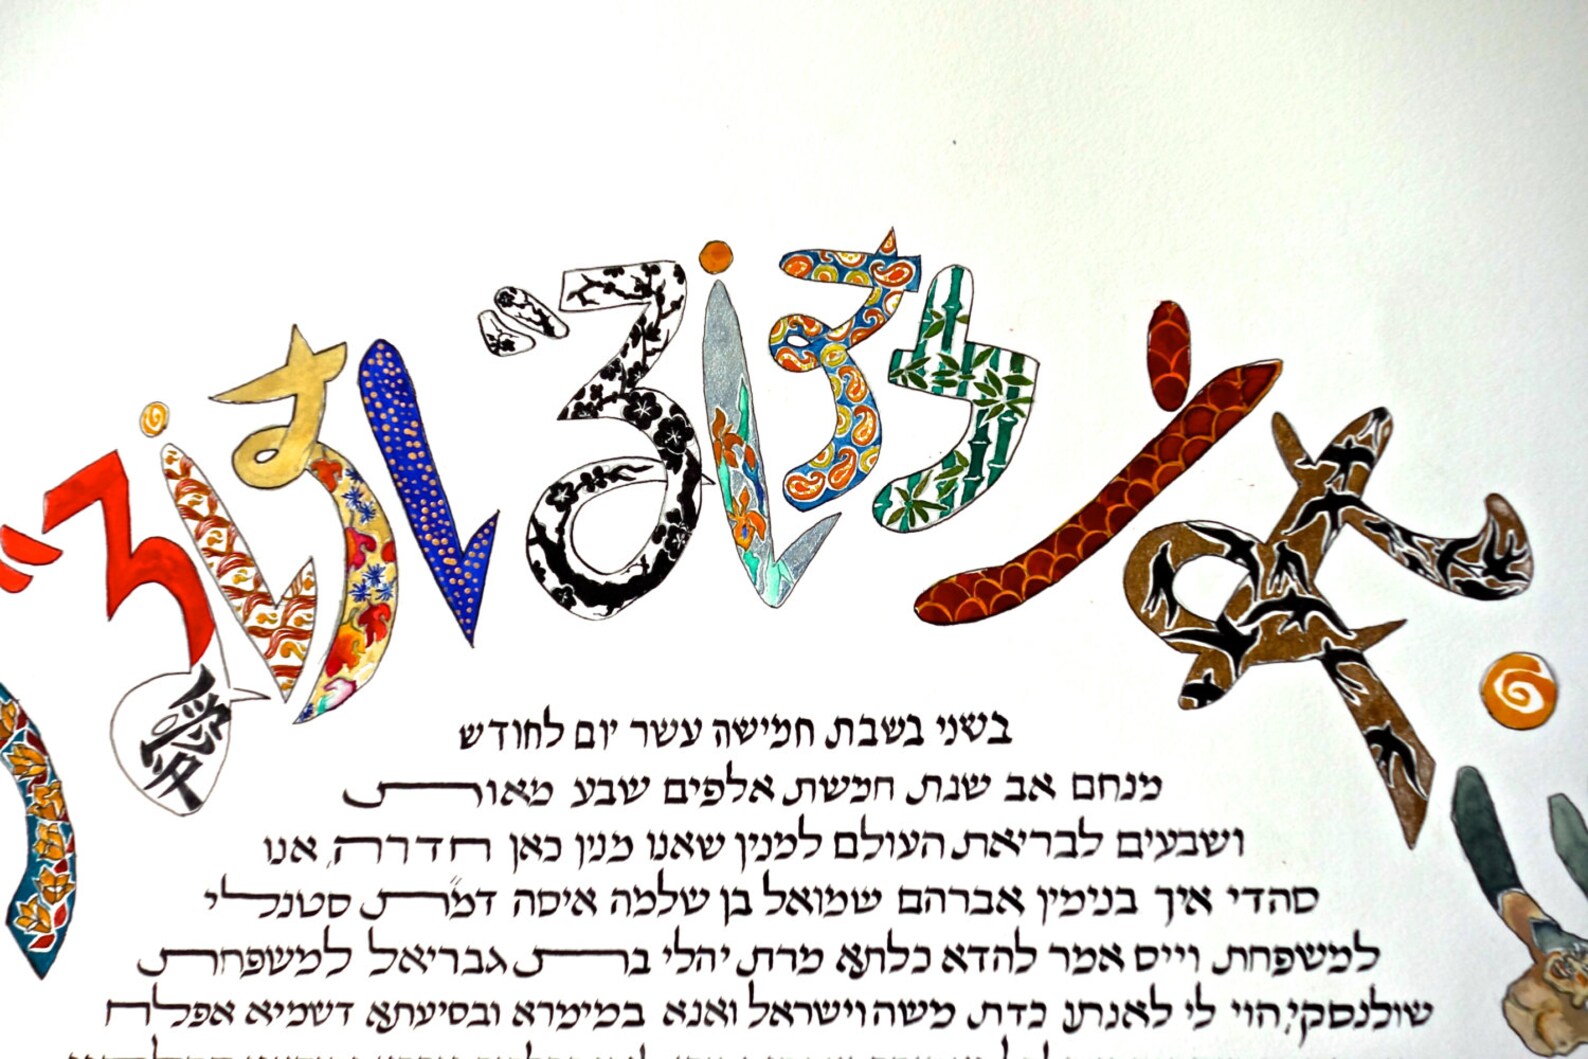 אני לדודי ודודי
愛
בשני בשבת חמישה עשר יום לחודש
מנחם אב שנת חמשת אלפים שבע מאות
ושבעים לבריאת העולם למנין שאנו מנין כאן חדרה, אנו
סהדי איך בנימין אברהם שמואל בן שלמה איסה דמ״ת סטנלי
למשפחת וייס אמר להדא כלתא מרת יהלי בת גבריאל למשפחת
שולנסקי, הוי לי לאנתו כדת משה וישראל ואנא במימרא ובסיעתא דשמיא אפלח